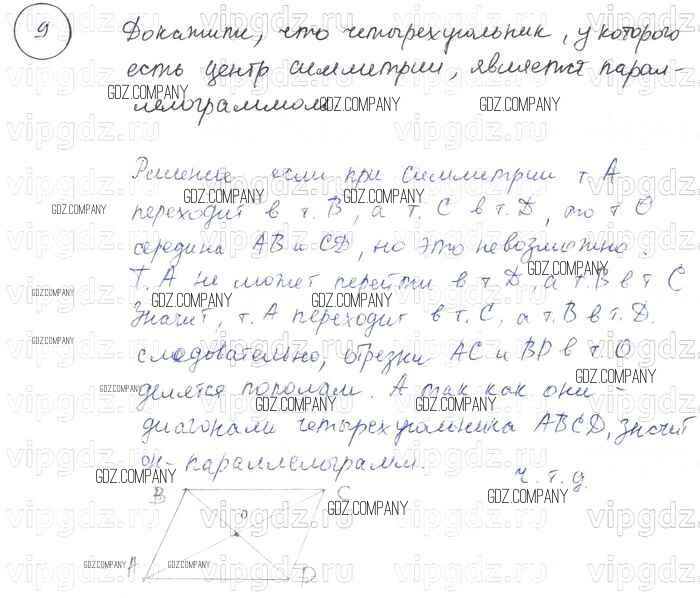 9 Докажите, что четырехугольник, у которого
есть центр симметрии, является парал-
лелограммом
Решение если при симметрии т. А
переходит в т. В, а т. С в т. D, то т О
середина АВ и СD, но это невозможно.
Т. А не может перейти в т. D, а т. В в т С
Значит, т. А переходит в т. С, а т. В в т. D.
следовательно, отрезки АС и BD в т. О
делятся пополам. А так как они -
диагонали четырехугольника ABCD, значит
он - параллелограмм.
ч. т. д.
B C
O
A D
GDZ.COMPANY
vipgdz.ru